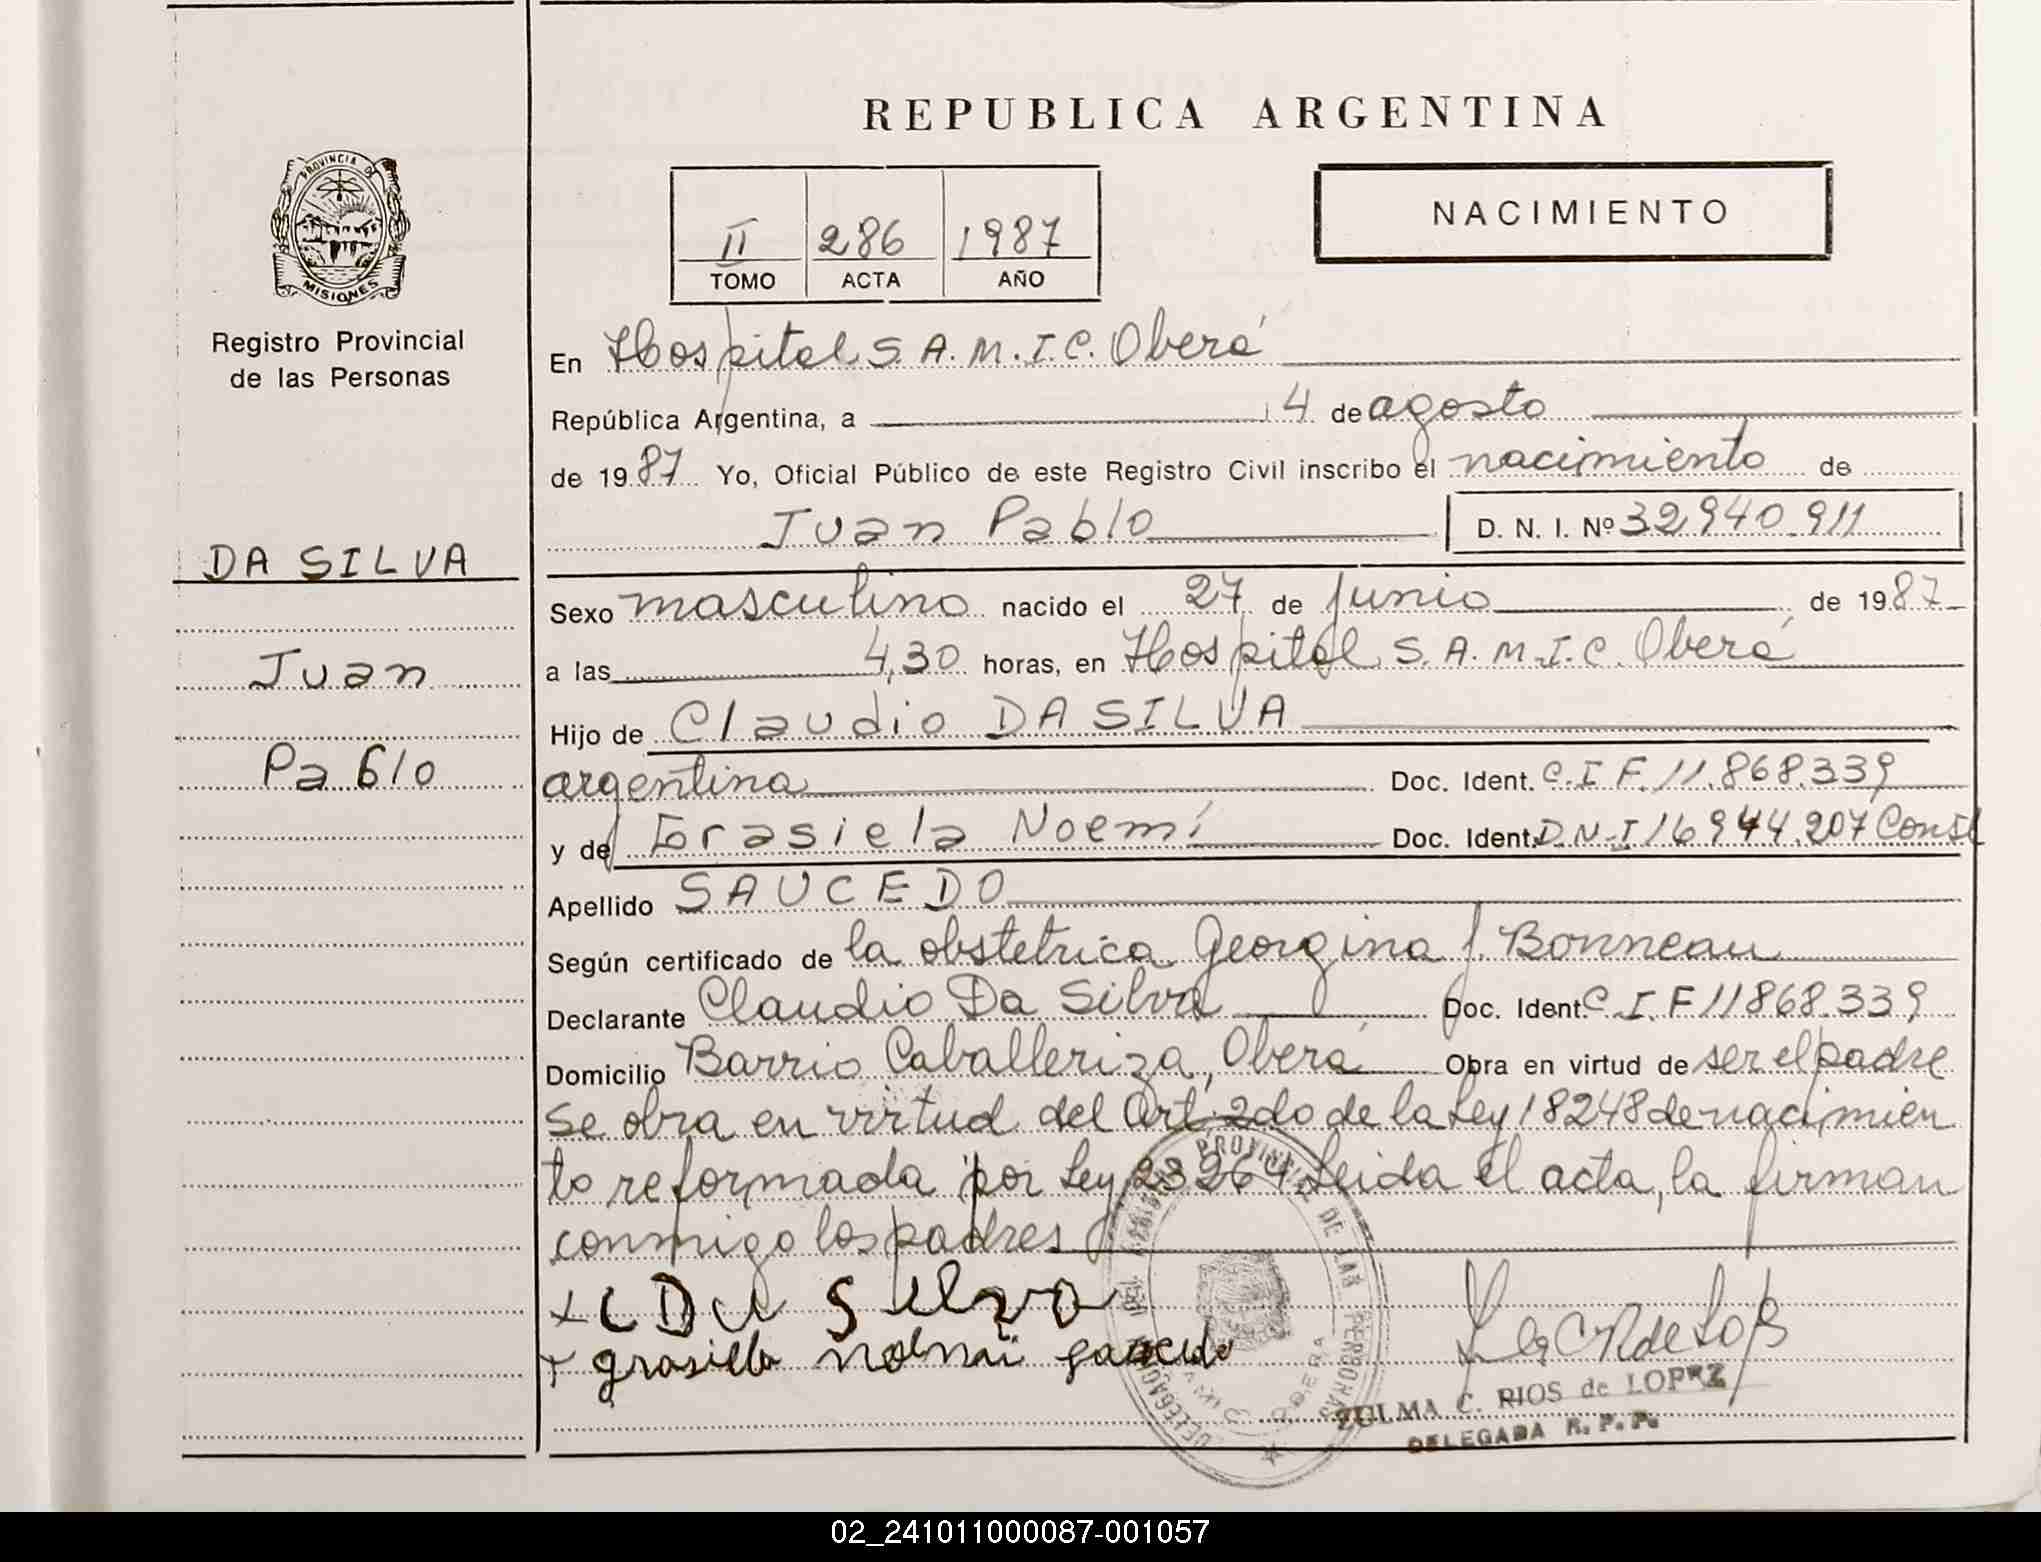 REPUBLICA ARGENTINA
PROVINCIA DE
MISIONES
Registro Provincial
de las Personas
DA SILVA
Juan
Pablo
II 286 1987
TOMO ACTA AÑO
NACIMIENTO
En Hospital S.A.M.I.C. Oberá
República Argentina, a 14 de agosto
de 1987 Yo, Oficial Público de este Registro Civil inscribo el nacimiento de
Juan Pablo D. N. I. Nº 32.940.911
Sexo masculino nacido el 27 de junio de 1987
a las 4,30 horas, en Hospital S.A.M.I.C. Oberá
Hijo de Claudio DA SILVA
argentina Doc. Ident. C.I.F. 11.868.339
y de Grasiela Noemí Doc. Ident. D.N.I 16944.207 Const
Apellido SAUCEDO
Según certificado de la obstetrica Georgina J. Bonneau
Declarante Claudio Da Silva Doc. Ident. C.I.F 11868.339
Domicilio Barrio Caballeriza, Oberá Obra en virtud de ser el padre
se obra en virtud del Art. 2do de la Ley 18248 de nacimien
to reformada por Ley 23264 Leida el acta, la firman
conmigo los padres
+ C Da Silva
+
ZULMA C. RIOS de LOPEZ
DELEGADA R. P. P.
02_241011000087-001057